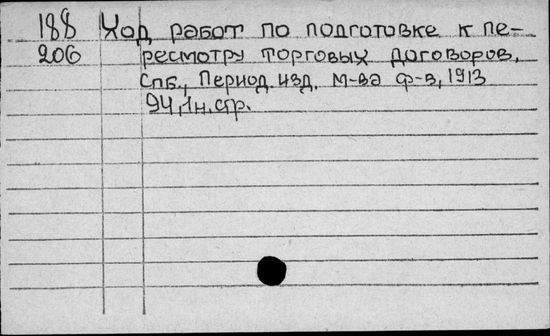 188 Ход работ по подготовке к пе-
206 ресмотру торговых договоров,
Спб., Период. изд. м-ва ф-в, 1913
94, 1н. стр.